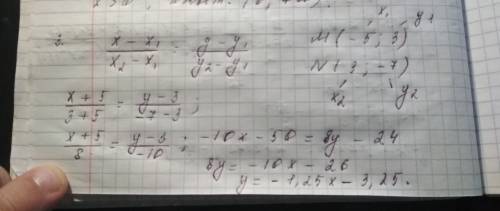 3. (x - x₁)/(x₂ - x₁) = (y - y₁)/(y₂ - y₁)
x₁ y₁
M(-5; 3)
N(3; -7)
x₂ y₂
(x + 5)/(3 + 5) = (y - 3)/(-7 - 3);
(x + 5)/8 = (y - 3)/(-10); -10x - 50 = 8y - 24
8y = -10x - 26
y = -1,25x - 3,25.